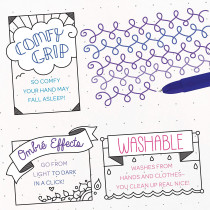 COMFY
GRIP
SO COMFY
YOUR HAND MAY
FALL ASLEEP!
Ombré Effects
GO FROM
LIGHT TO DARK
IN A CLICK!
WASHABLE
WASHES FROM
HANDS AND CLOTHES–
YOU CLEAN UP REAL NICE!